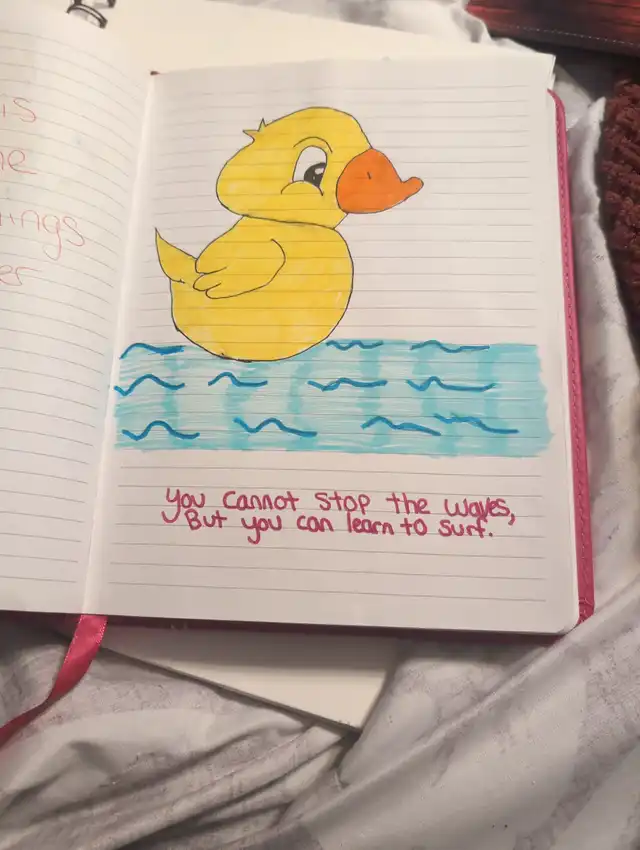 is
ings
you cannot stop the waves,
But you can learn to surf.